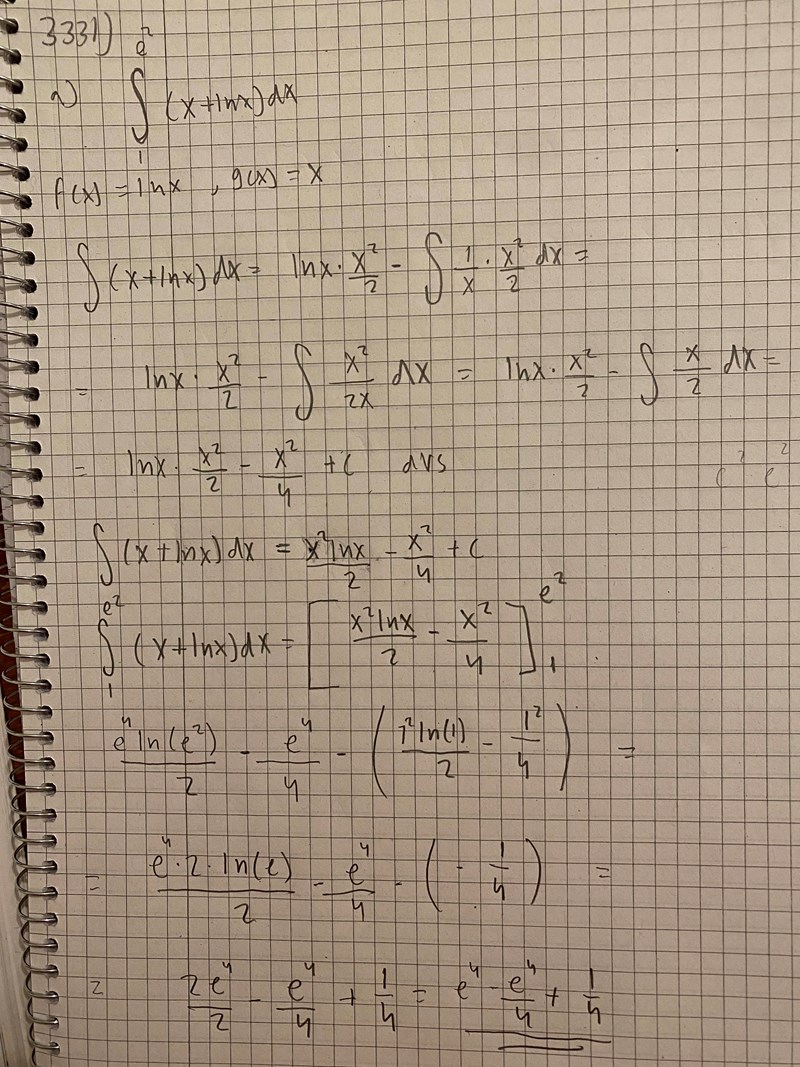 3331)
a) ∫₁^{e²} (x+lnx)dx
f(x) = lnx , g(x) = x
∫(x+lnx)dx = lnx · x²/2 - ∫ 1/x · x²/2 dx =
= lnx · x²/2 - ∫ x²/2x dx = lnx · x²/2 - ∫ x/2 dx =
= lnx · x²/2 - x²/4 + C dvs
∫(x+lnx)dx = x²lnx/2 - x²/4 + C
∫₁^{e²} (x+lnx)dx = [x²lnx/2 - x²/4]₁^{e²}
e⁴ln(e²)/2 - e⁴/4 - (1²ln(1)/2 - 1²/4) =
= e⁴·2·ln(e)/2 - e⁴/4 - (- 1/4) =
= 2e⁴/2 - e⁴/4 + 1/4 = e⁴ - e⁴/4 + 1/4